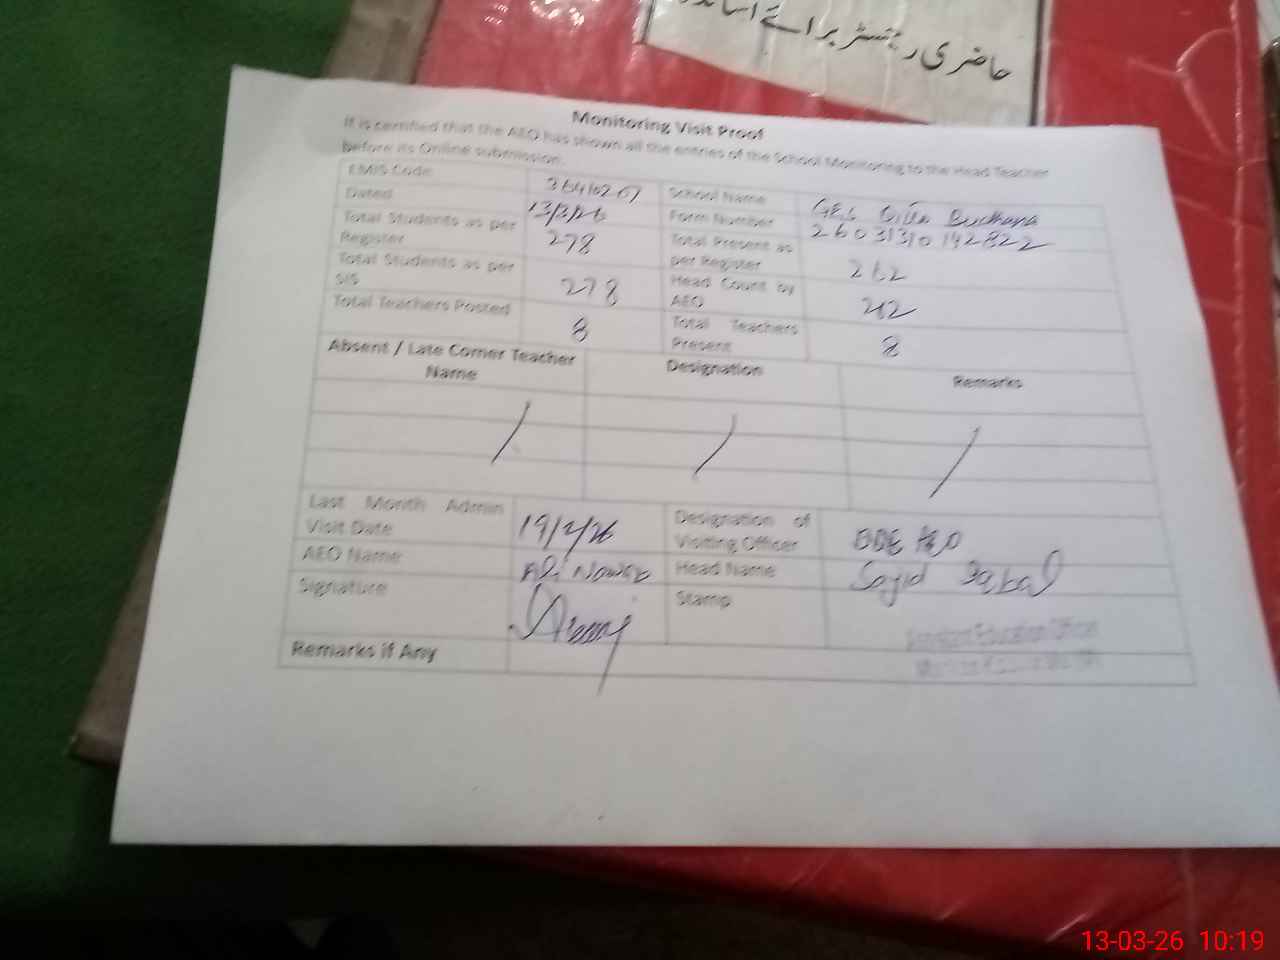 حاضری رجسٹر برائے اساتذہ
Monitoring Visit Proof
It is certified that the AEO has shown all the entries of the School Monitoring to the Head Teacher
before its Online submission.
EMIS Code 36410267 School Name GES
Dated 13/3/26 Form Number 26031310142822
Total Students as per Register 278 Total Present as per Register 262
Total Students as per SIS 278 Head Count by AEO 262
Total Teachers Posted 8 Total Teachers Present 8
Absent / Late Comer Teacher Name Designation Remarks
/ / /
Last Month Admin Visit Date 19/2/26 Designation of Visiting Officer AEO
AEO Name Ali Nawaz Head Name Sajid Iqbal
Signature Stamp
Assistant Education Officer
Remarks if Any
13-03-26 10:19